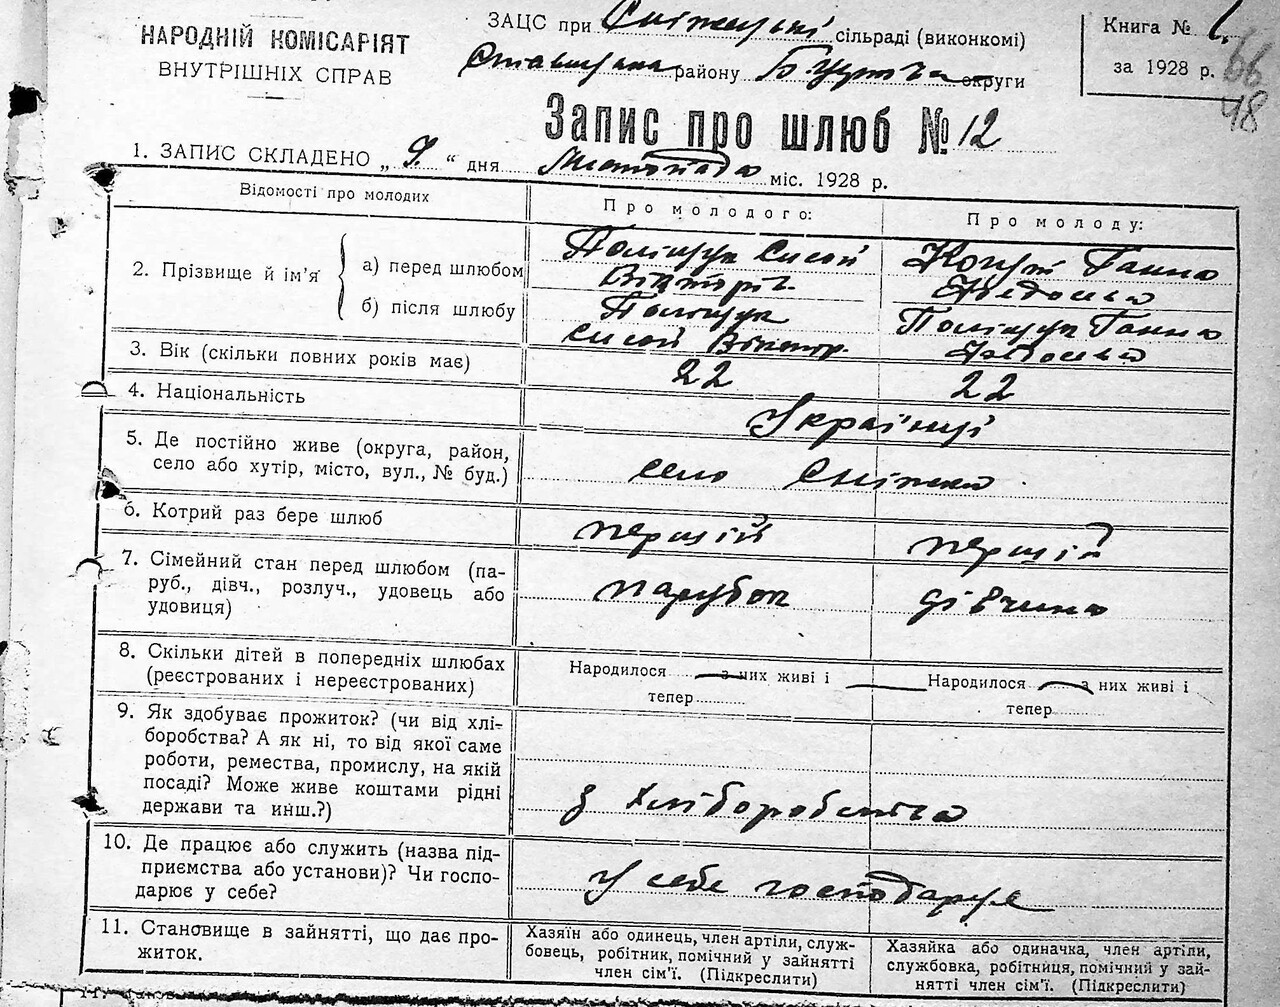 НАРОДНІЙ КОМІСАРІЯТ
ВНУТРІШНІХ СПРАВ
ЗАЦС при Сніжській сільраді (виконкомі)
району Б. Церків. округи
Книга №
за 1928 р.
66
48
Запис про шлюб № 12
1. ЗАПИС СКЛАДЕНО „ 9. " дня Листопада міс. 1928 р.
Відомості про молодих
Про молодого:
Про молоду:
2. Прізвище й ім'я
а) перед шлюбом
Поліщук Сисой
Вікторів.
Ганна
Федосьєва
б) після шлюбу
Поліщук
Сисой Віктор.
Поліщук Ганна
3. Вік (скільки повних років має)
22
22
4. Національність
Українці
5. Де постійно живе (округа, район,
село або хутір, місто, вул., № буд.)
село Сніжки
6. Котрий раз бере шлюб
перший
перший
7. Сімейний стан перед шлюбом (па-
руб., дівч., розлуч., удовець або
удовиця)
парубок
дівчина
8. Скільки дітей в попередніх шлюбах
(реєстрованих і нереєстрованих)
Народилося — з них живі і
тепер
Народилося — з них живі і
тепер
9. Як здобуває прожиток? (чи від хлі-
боробства? А як ні, то від якої саме
роботи, ремества, промислу, на якій
посаді? Може живе коштами рідні
держави та инш.?)
з хліборобства
10. Де працює або служить (назва під-
приємства або установи)? Чи госпо-
дарює у себе?
у себе господарує
11. Становище в зайнятті, що дає про-
житок.
Хазяїн або одинець, член артіли, служ-
бовець, робітник, помічний у зайнятті
член сім'ї. (Підкреслити)
Хазяйка або одиначка, член артіли,
службовка, робітниця, помічний у зай-
нятті член сім'ї. (Підкреслити)